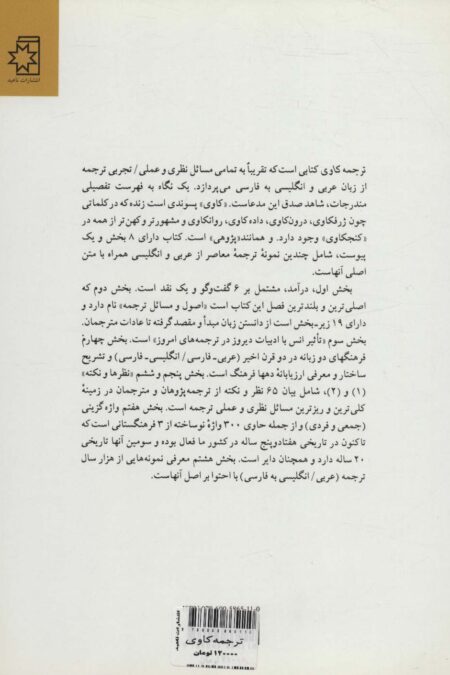 انتشارات ناهید
ترجمه کاوی کتابی است که تقریباً به تمامی مسائل نظری و عملی / تجربی ترجمه
از زبان عربی و انگلیسی به فارسی می‌پردازد. یک نگاه به فهرست تفصیلی
مندرجات، شاهد صدق این مدعاست. «کاوی» پسوندی است زنده که در کلماتی
چون ژرفکاوی، درون‌کاوی، داده کاوی، روانکاوی و مشهورتر و کهن‌تر از همه در
«کنجکاوی» وجود دارد. و همانند «پژوهی» است. کتاب دارای ۸ بخش و یک
پیوست، شامل چندین نمونهٔ ترجمهٔ معاصر از عربی و انگلیسی همراه با متن
اصلی آنهاست.
بخش اول، درآمد، مشتمل بر ۶ گفت‌وگو و یک نقد است. بخش دوم که
اصلی‌ترین و بلندترین فصل این کتاب است «اصول و مسائل ترجمه» نام دارد و
دارای ۱۹ زیر-بخش است از دانستن زبان مبدأ و مقصد گرفته تا عادات مترجمان.
بخش سوم «تأثیر انس با ادبیات دیروز در ترجمه‌های امروز» است. بخش چهارم
فرهنگهای دو زبانه در دو قرن اخیر (عربی-فارسی / انگلیسی-فارسی) و تشریح
ساختار و معرفی ارزیابانهٔ دهها فرهنگ است. بخش پنجم و ششم «نظرها و نکته»
(۱) و (۲)، شامل بیان ۶۵ نظر و نکته از ترجمه‌پژوهان و مترجمان در زمینهٔ
کلی‌ترین و ریزترین مسائل نظری و عملی ترجمه است. بخش هفتم واژه گزینی
(جمعی و فردی) و از جمله حاوی ۳۰۰ واژهٔ نوساخته از ۳ فرهنگستانی است که
تاکنون در تاریخی هفتادوپنج ساله در کشور ما فعال بوده و سومین آنها تاریخی
۲۰ ساله دارد و همچنان دایر است. بخش هشتم معرفی نمونه‌هایی از هزار سال
ترجمه (عربی / انگلیسی به فارسی) با احتوا بر اصل آنهاست.
ترجمه کاوی
۱۲۰۰۰۰ تومان